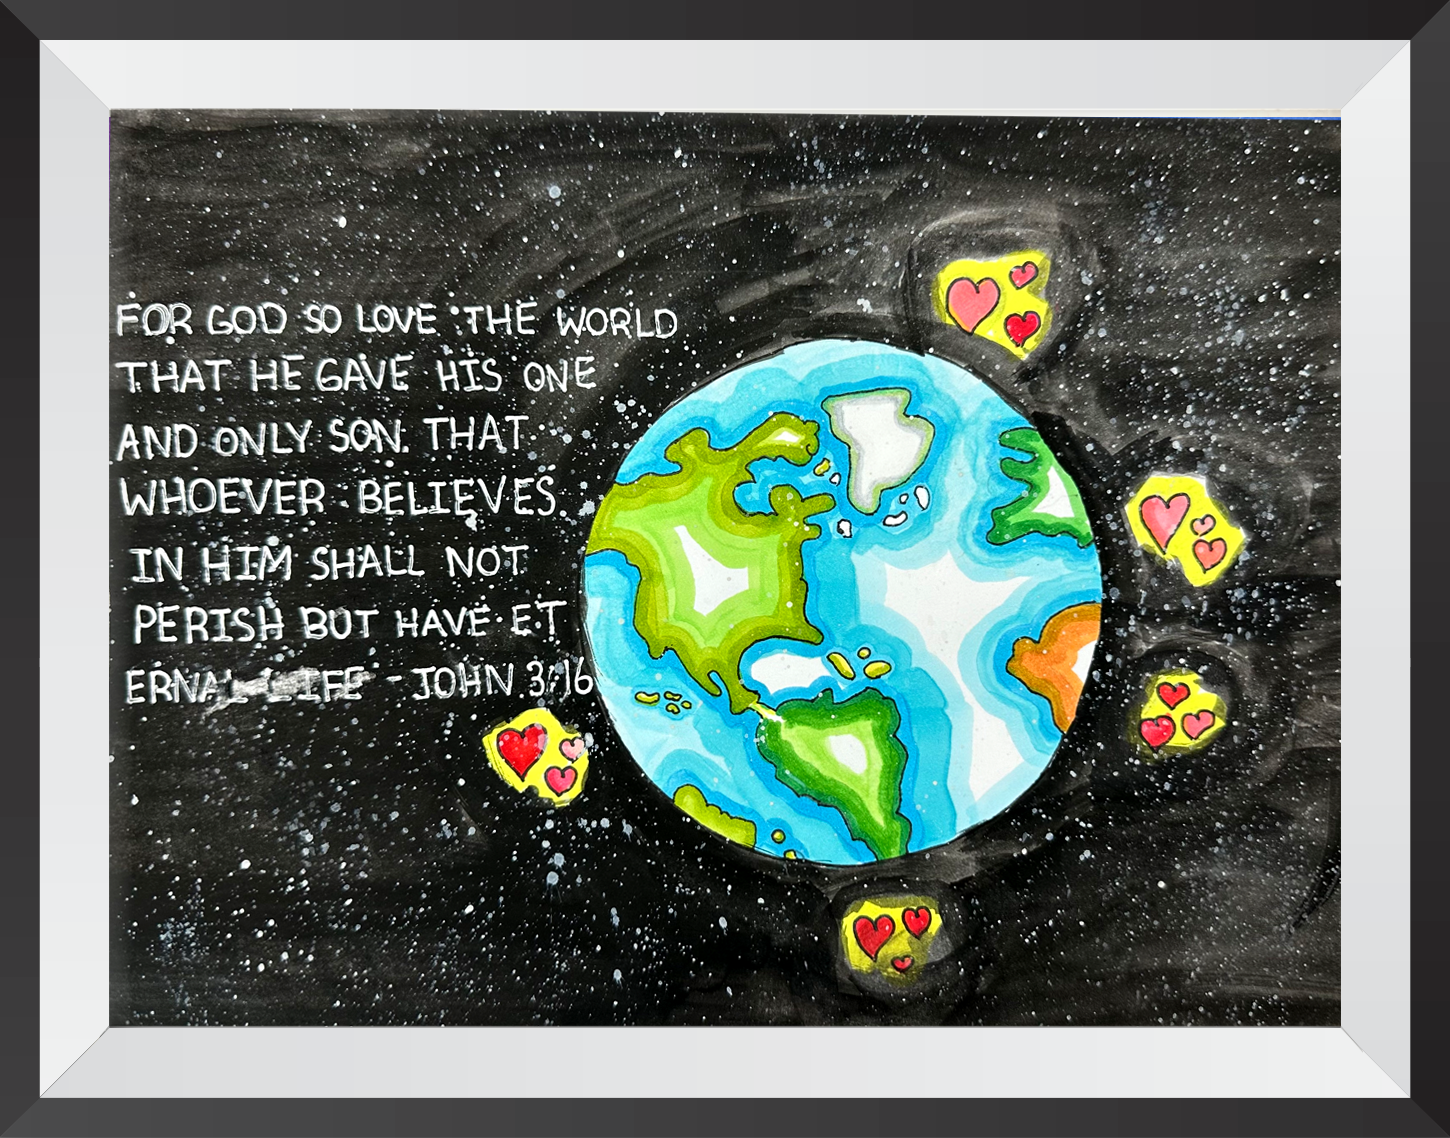 FOR GOD SO LOVE THE WORLD
THAT HE GAVE HIS ONE
AND ONLY SON. THAT
WHOEVER BELIEVES.
IN HIM SHALL NOT
PERISH BUT HAVE ET
ERNAL LIFE - JOHN 3:16